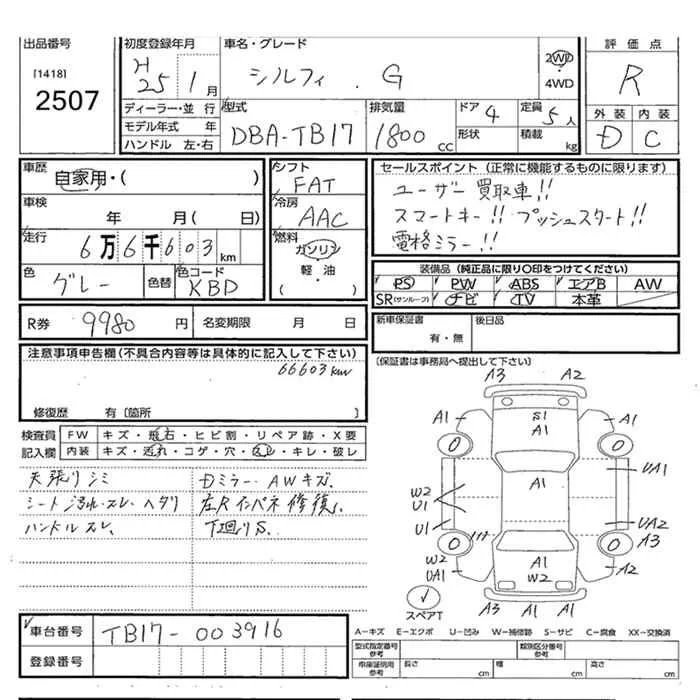 出品番号 初度登録年月 車名・グレード 評価点
[1418]
2507
H25 1月 シルフィ . G 2WD・4WD R
ディーラー・並行 型式 排気量 ドア 4 定員 5人 外装 内装
モデル年式 年 DBA-TB17 1800cc 形状 積載 kg D C
ハンドル 左・右
車歴 自家用・( ) シフト FAT セールスポイント (正常に機能するものに限ります)
車検 年 月( 日) 冷房 AAC ユーザー買取車!!
スマートキー!! プッシュスタート!!
走行 6万6千603km 燃料 ガソリン 電格ミラー!!
軽・油
( )
色 グレー 色替 色コード KBD 装備品 (純正品に限り○印をつけてください)
PS PW ABS エアB AW
SR(サンルーフ) ナビ TV 本革
R券 9980円 名変期限 月 日 新車保証書 有・無 後日品
注意事項申告欄(不具合内容等は具体的に記入して下さい) (保証書は事務局へ提出して下さい)
66603km
修復歴 有〔箇所 〕
検査員 FW キズ・飛石・ヒビ割・リペア跡・X要
記入欄 内装 キズ・汚れ・コゲ・穴・スレ・キレ・破レ
天張りシミ Dミラー・AWキズ.
シート汚れ・スレ・ヘタリ 左Rインパネ修復.
ハンドルスレ、 下廻りS.
A3 A2
A1 S1 A1 A1
0 0
A1 UA1
W2
U1
U1 UA2
0 0 A3
W2 A1 A2
UA1 W2
A3 A1 A1
スペアT
車台番号 TB17-003916
登録番号
A－キズ E－エクボ U－凹み W－補修跡 S－サビ C－腐食 XX－交換済
型式指定番号 参考 類別区分番号 参考
車庫証明用 参考 長さ cm 幅 cm 高さ cm